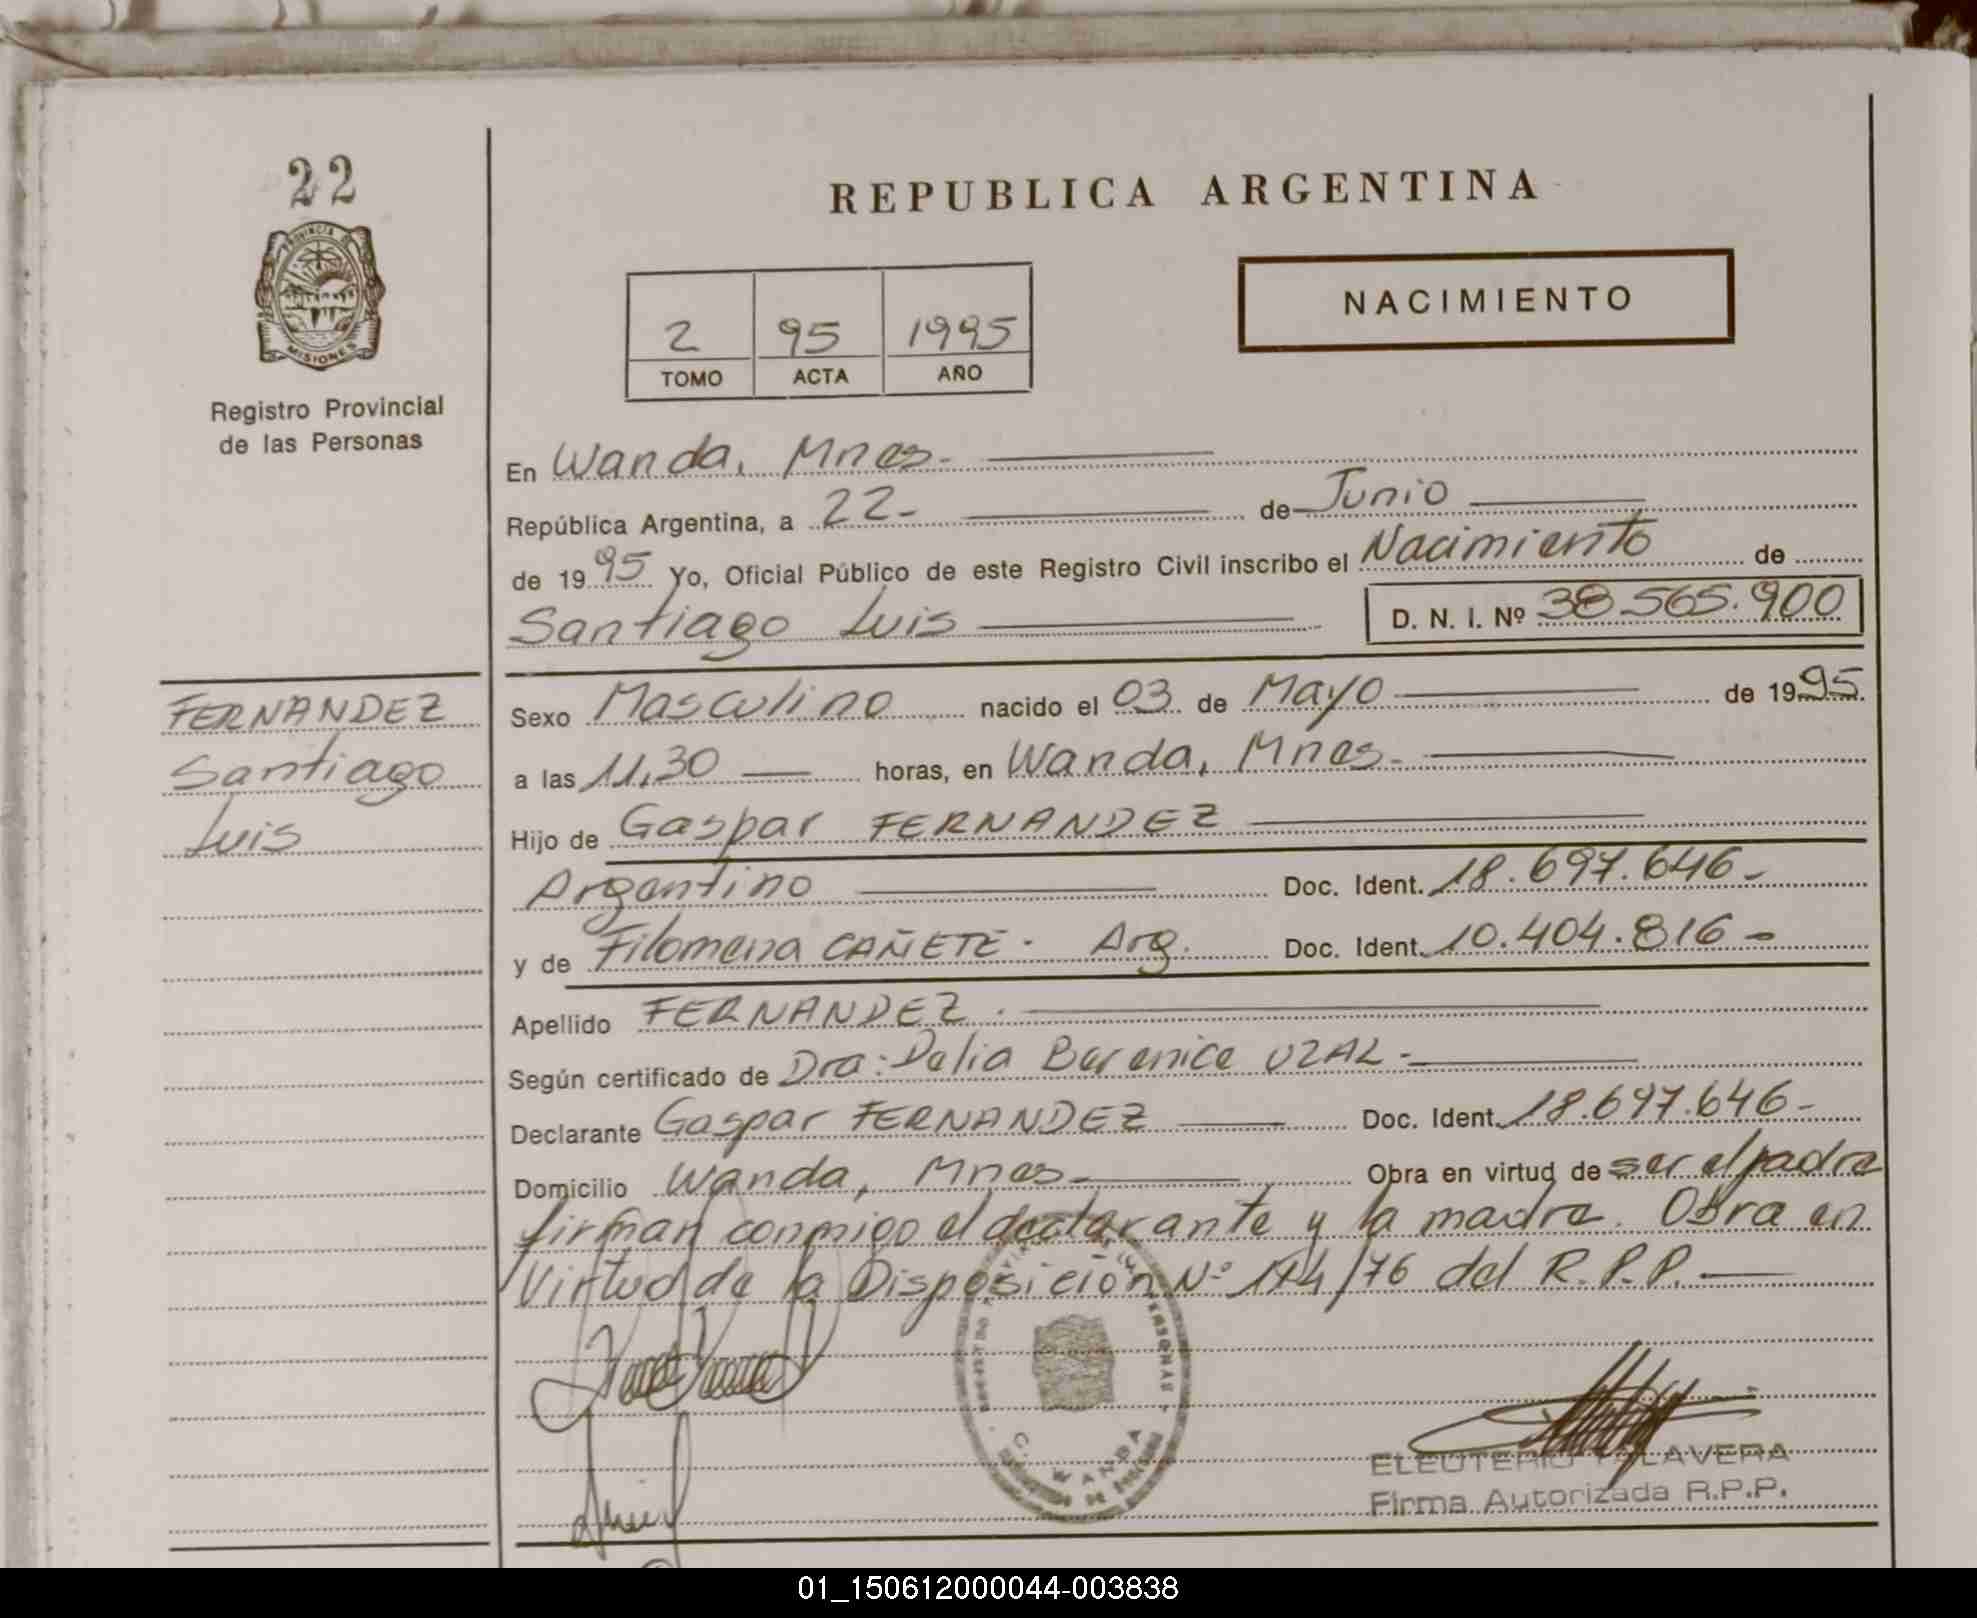 22
PROVINCIA DE
MISIONES
Registro Provincial
de las Personas
REPUBLICA ARGENTINA
2 95 1995
TOMO ACTA AÑO
NACIMIENTO
En Wanda, Mnes.
República Argentina, a 22- de Junio
de 1995 Yo, Oficial Público de este Registro Civil inscribo el Nacimiento de
Santiago Luis D. N. I. Nº 38.565.900
FERNANDEZ
Santiago
Luis
Sexo Masculino nacido el 03 de Mayo de 1995.
a las 11,30 horas, en Wanda, Mnes.
Hijo de Gaspar FERNANDEZ
Argentino Doc. Ident. 18.697.646-
y de Filomena CAÑETE. Arg. Doc. Ident. 10.404.816-
Apellido FERNANDEZ.
Según certificado de Dra: Delia Berenice UZAL-
Declarante Gaspar FERNANDEZ Doc. Ident. 18.697.646-
Domicilio Wanda, Mnes. Obra en virtud de ser el padre
firman conmigo el declarante y la madre. Obra en
Virtud de la Disposición Nº 174/76 del R.P.P.
WANDA
ELEUTERIO TALAVERA
Firma Autorizada R.P.P.
01_150612000044-003838